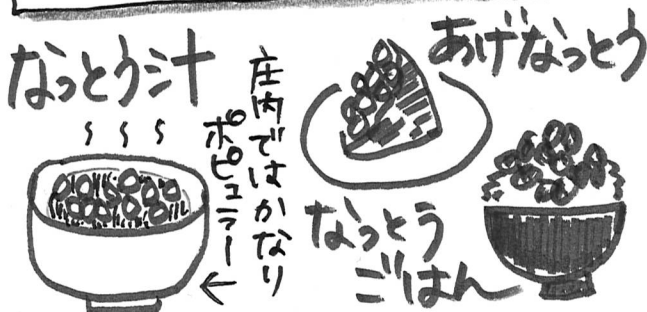 なっとう汁
庄内ではかなり
ポピュラー
あげなっとう
なっとう
ごはん